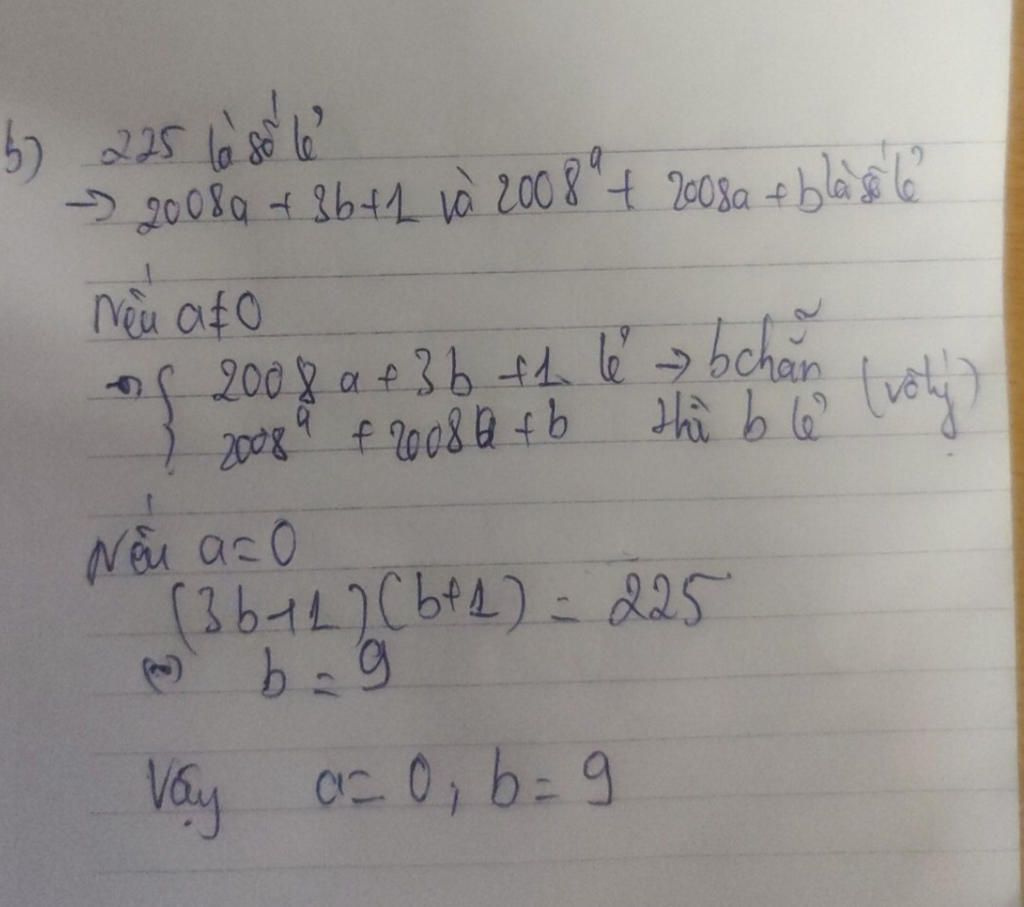 b) 225 là số lẻ
→ 2008a + 3b+1 và 2008^a + 2008a + b là số lẻ
Nếu a≠0
⇒ { 2008a + 3b + 1 lẻ → b chẵn (vô lý)
2008^a + 2008a + b thì b lẻ
Nếu a=0
(3b+1)(b+1) = 225
⇔ b = 9
Vậy a=0, b=9